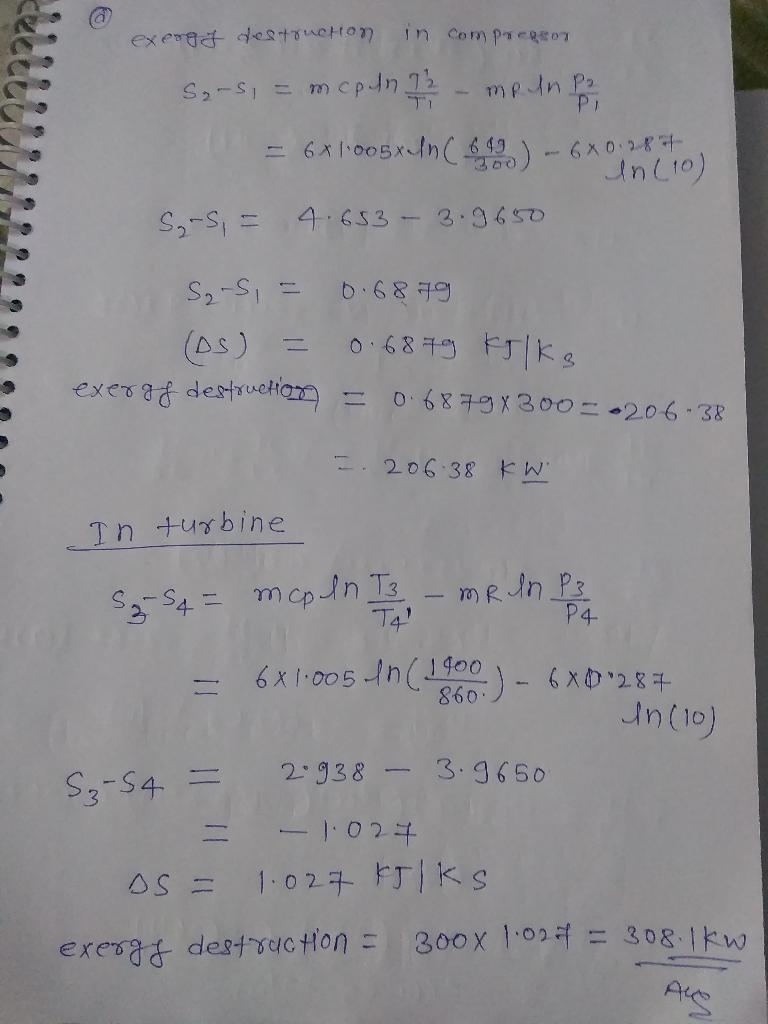 (d)
exergy destruction in compressor
S2-S1 = m cp ln T2'/T1 - mR ln P2/P1
= 6×1.005×ln(649/300) - 6×0.287 ln(10)
S2-S1 = 4.653 - 3.9650
S2-S1 = 0.6879
(DS) = 0.6879 KJ/Ks
exergy destruction = 0.6879×300 = 206.38
= 206.38 KW
In turbine
S3-S4 = mcp ln T3/T4' - mR ln P3/P4
= 6×1.005 ln(1400/860.) - 6×0.287 ln(10)
S3-S4 = 2.938 - 3.9650
= -1.027
DS = 1.027 KJ/Ks
exergy destruction = 300× 1.027 = 308.1KW
Ans